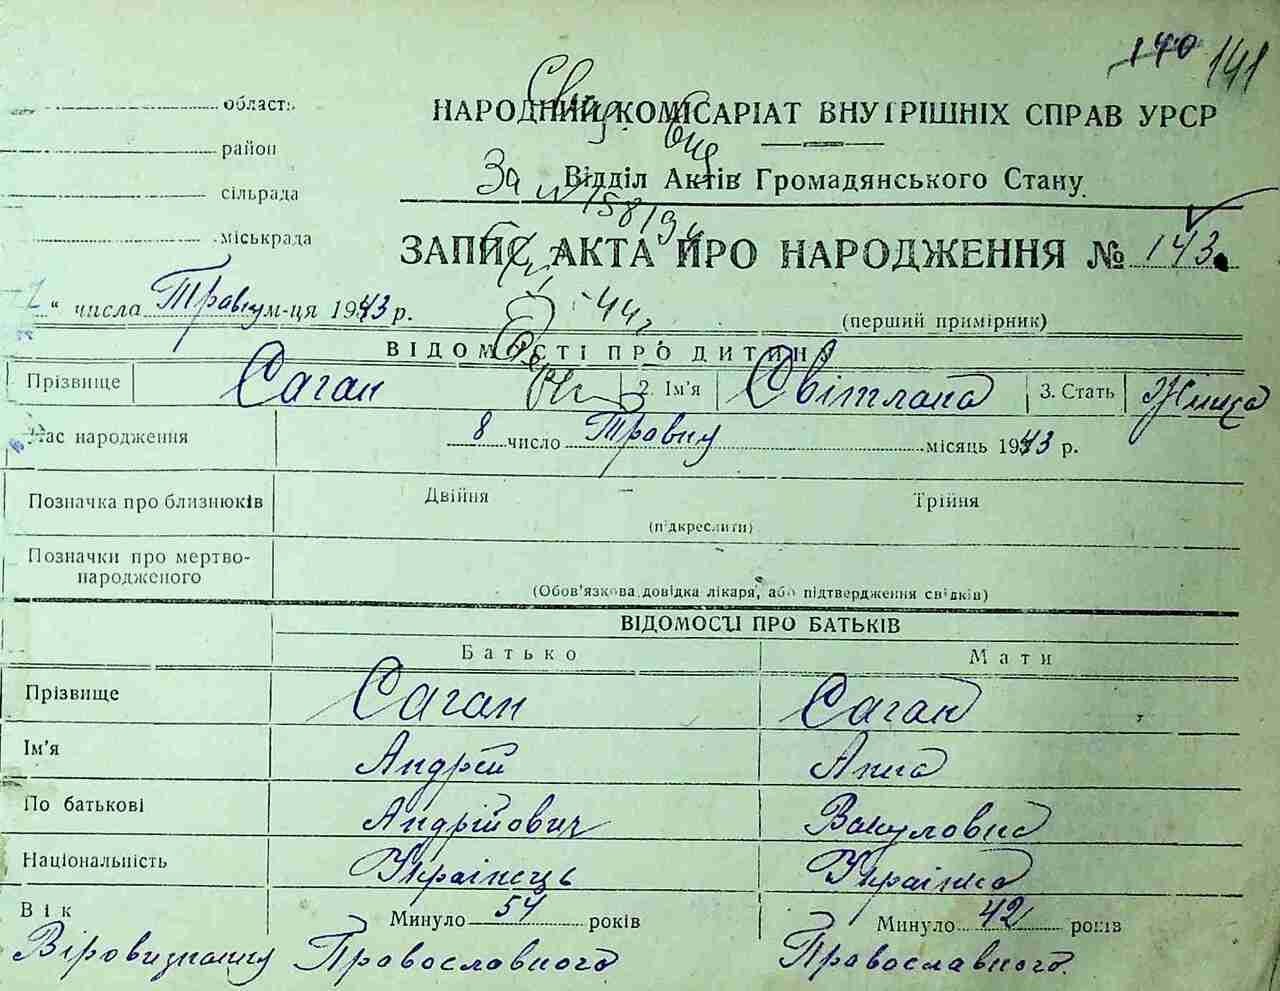 140 141
область
НАРОДНИЙ КОМІСАРІАТ ВНУТРІШНІХ СПРАВ УРСР
район
Відділ Актів Громадянського Стану
сільрада
За № 158194
міськрада
ЗАПИС АКТА ПРО НАРОДЖЕННЯ № 143
" числа Травня м-ця 1943 р.
(перший примірник)
ВІДОМОСТІ ПРО ДИТИНУ
Прізвище Саган 2. Ім'я Світлана 3. Стать Жіноча
Час народження 8 число Травня місяць 1943 р.
Позначка про близнюків Двійня – Трійня
(підкреслити)
Позначки про мертво-
народженого
(Обов'язкова довідка лікаря, або підтвердження свідків)
ВІДОМОСТІ ПРО БАТЬКІВ
Батько Мати
Прізвище Саган Саган
Ім'я Андрій Анна
По батькові Андрійович Вакуловна
Національність Українець Українка
Вік Минуло 54 років Минуло 42 років
Віровизнання Православного Православного